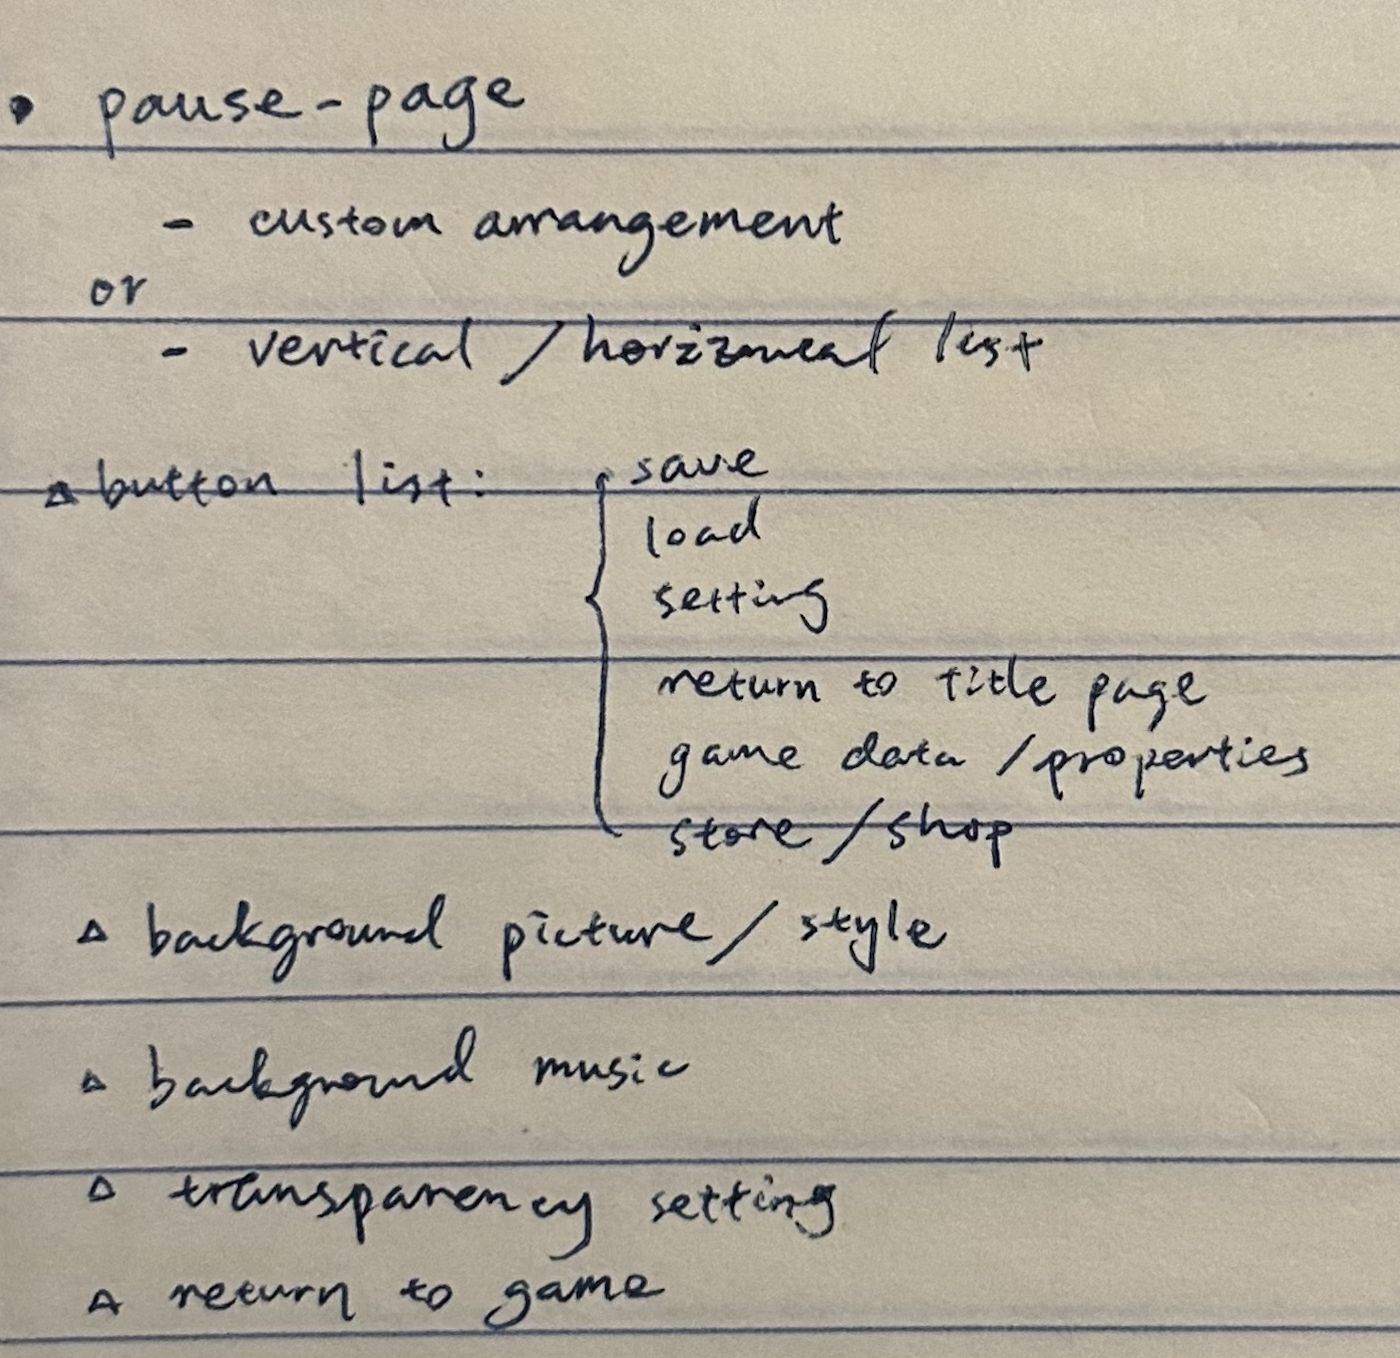 • pause-page
- custom arrangement
or
- vertical / horizontal list
△ button list: { save
load
setting
return to title page
game data / properties
store / shop
△ background picture / style
△ background music
△ transparency setting
△ return to game